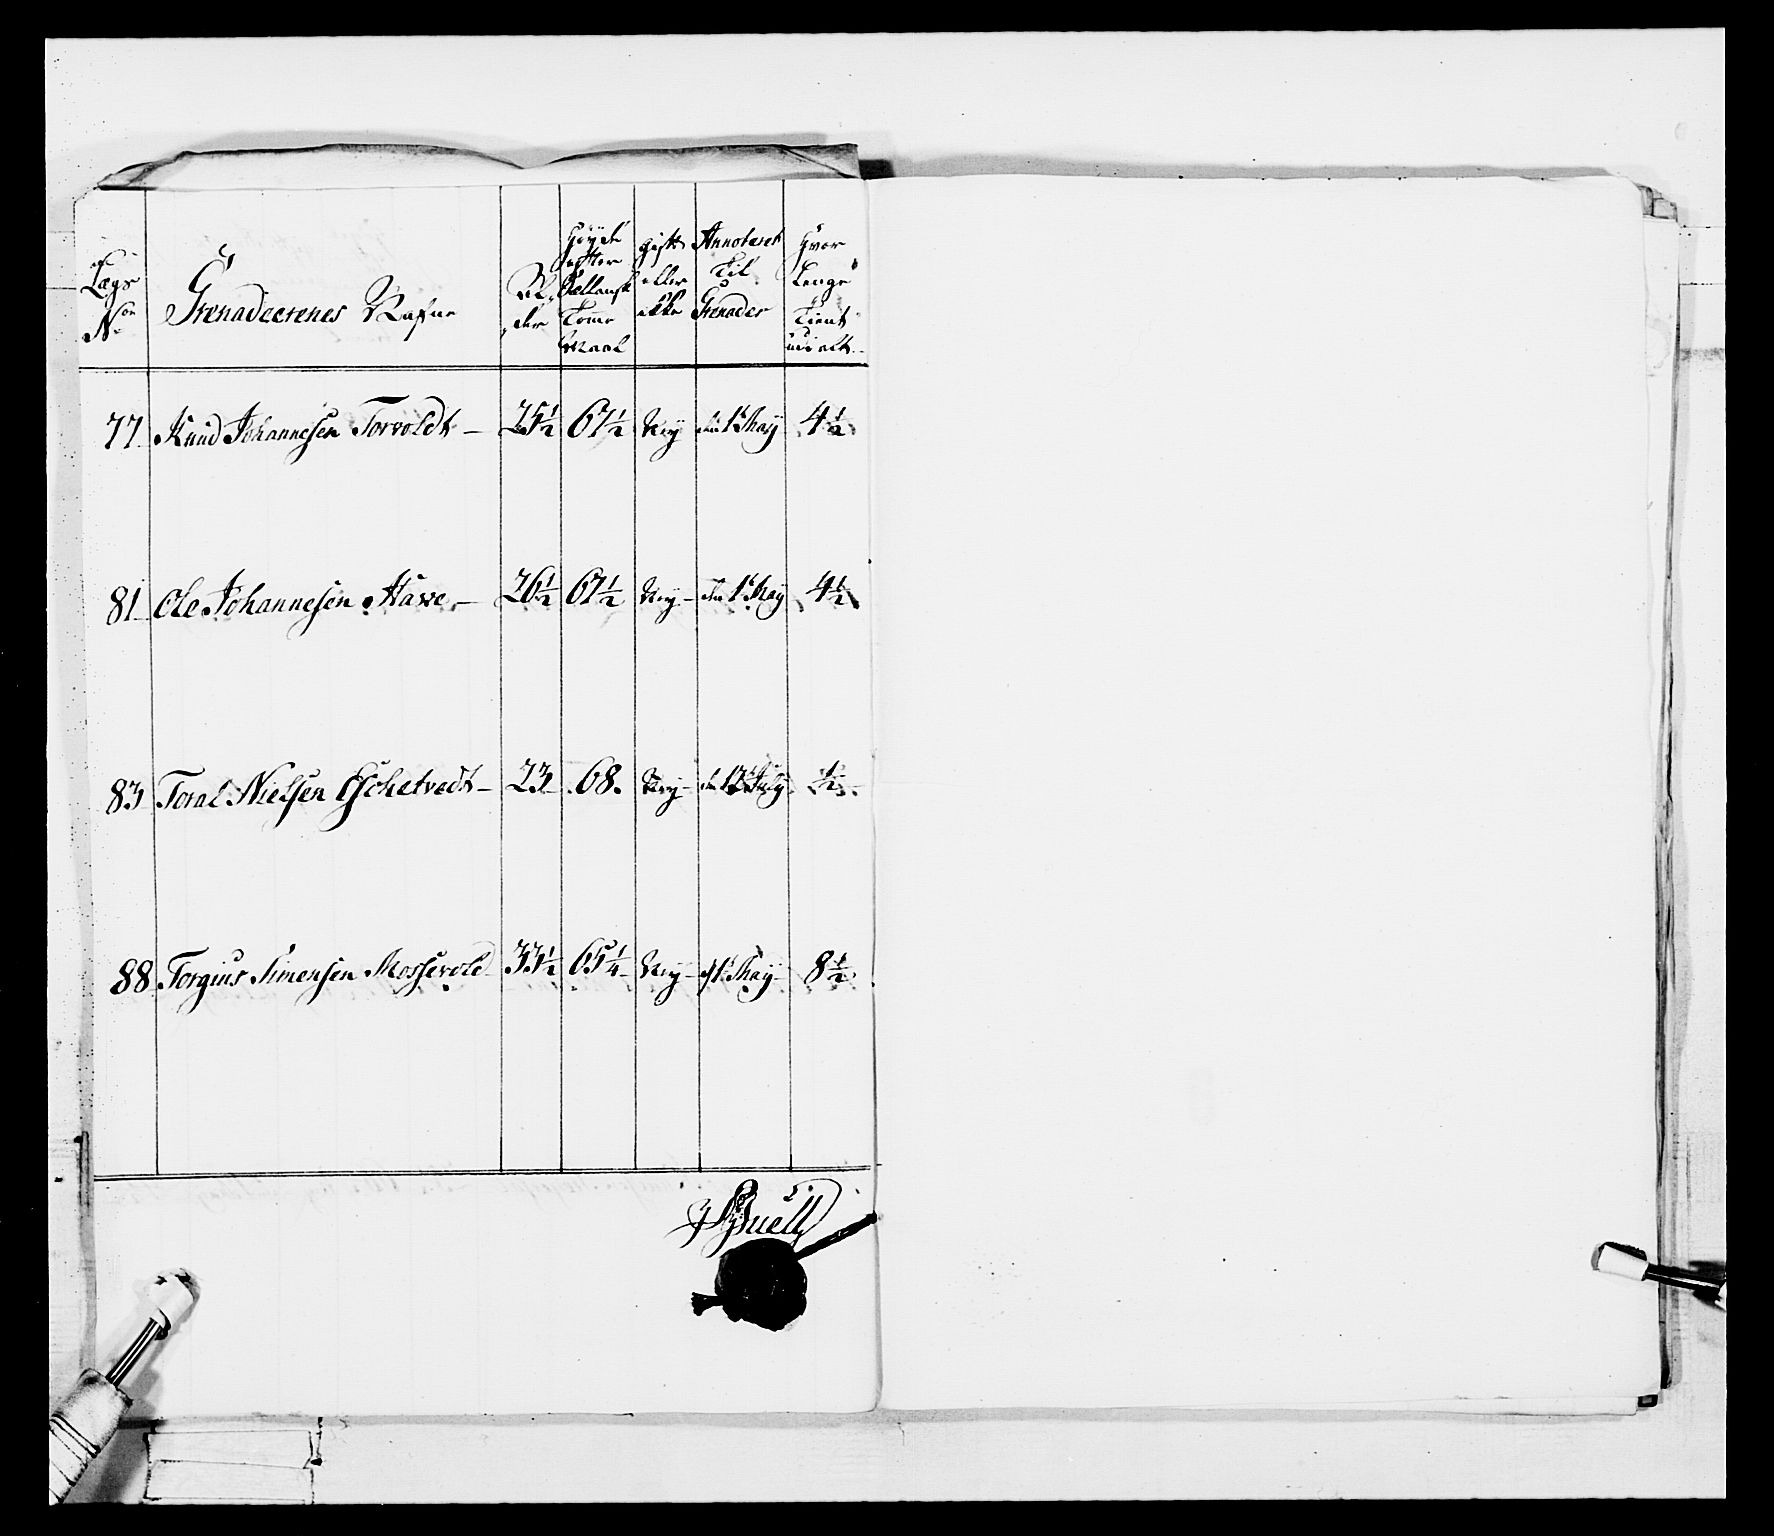 Lægs
No
Grenadeerenes Nafne
Al,
der
Høyde
efter
Sællansk
Tomme
Maal
gift
eller
ikke
Annoteret
Til
Grenader
Hvor
Lenge
Tient
udi alt
77. Knud Johannesen Torvoldt - 25½ 67½ Ney den 1t May 4½
81 Ole Johannesen Haave - 26½ 67½ Ney - den 1t May 4½
83 Toral Nielsen Eschetvedt - 23 68. Ney - den 12t July ½
88 Torgius Simensen Mossevold 33½ 65¼ Ney - d 1t May - 8½